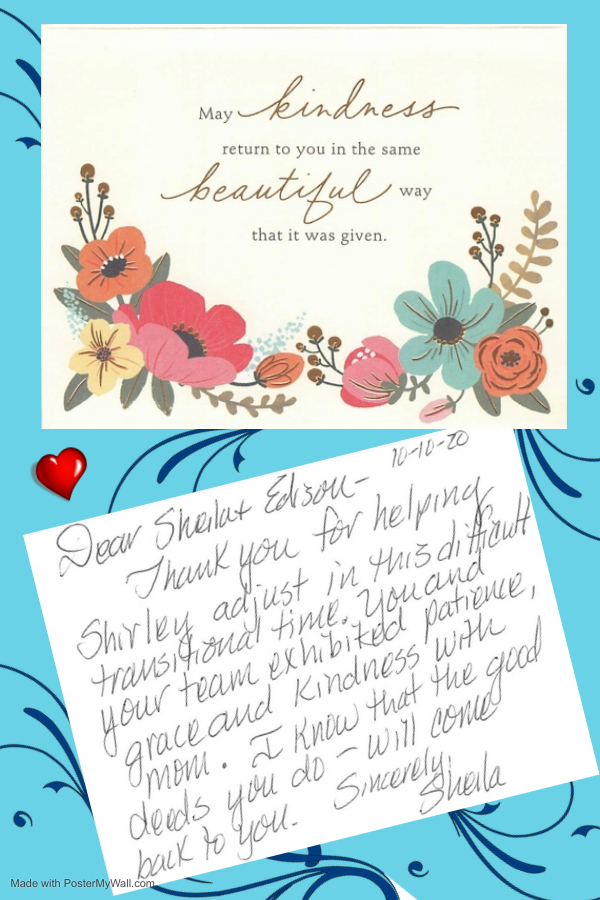 May kindness
return to you in the same
beautiful way
that it was given.
10-10-20
Dear Sheila + Edison -
Thank you for helping
Shirley adjust in this difficult
transitional time. You and
your team exhibited patience,
grace and kindness with
mom. I know that the good
deeds you do - will come
back to you. Sincerely
Sheila
Made with PosterMyWall.com